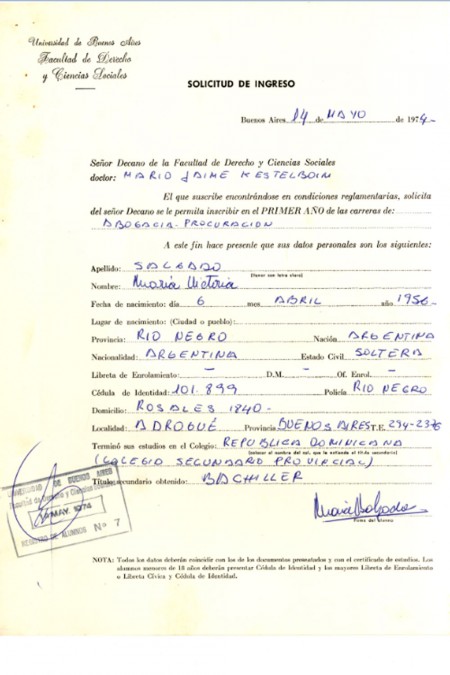 Universidad de Buenos Aires
Facultad de Derecho
y Ciencias Sociales
SOLICITUD DE INGRESO
Buenos Aires 14 de MAYO de 1974-
Señor Decano de la Facultad de Derecho y Ciencias Sociales
doctor: MARIO JAIME KESTELBOIM
El que suscribe encontrándose en condiciones reglamentarias, solicita
del señor Decano se le permita inscribir en el PRIMER AÑO de las carreras de:
ABOGACIA-PROCURACION
A este fin hace presente que sus datos personales son los siguientes:
Apellido: SALGADO
(favor con letra clara)
Nombre: María Victoria
Fecha de nacimiento: día 6 mes ABRIL año 1956-
Lugar de nacimiento: (Ciudad o pueblo):
Provincia: RIO NEGRO Nación ARGENTINA
Nacionalidad: ARGENTINA Estado Civil SOLTERA
Libreta de Enrolamiento: — D.M. — Of. Enrol. —
Cédula de Identidad: 101.899 Policía RIO NEGRO
Domicilio: ROSALES 1840-
Localidad: ADROGUÉ Provincia BUENOS AIRES T.E. 294-2376
Terminó sus estudios en el Colegio: REPUBLICA DOMINICANA
(colocar el nombre del col. que le extiende el título secundario)
(COLEGIO SECUNDARIO PROVINCIAL)
Título secundario obtenido: BACHILLER
Firma del alumno
UNIVERSIDAD DE BUENOS AIRES
Facultad de Derecho y Ciencias Sociales
MAY. 1974
REGISTRO DE ALUMNOS Nº 7
NOTA: Todos los datos deberán coincidir con los de los documentos presentados y con el certificado de estudios. Los
alumnos menores de 18 años deberán presentar Cédula de Identidad y los mayores Libreta de Enrolamiento
o Libreta Cívica y Cédula de Identidad.